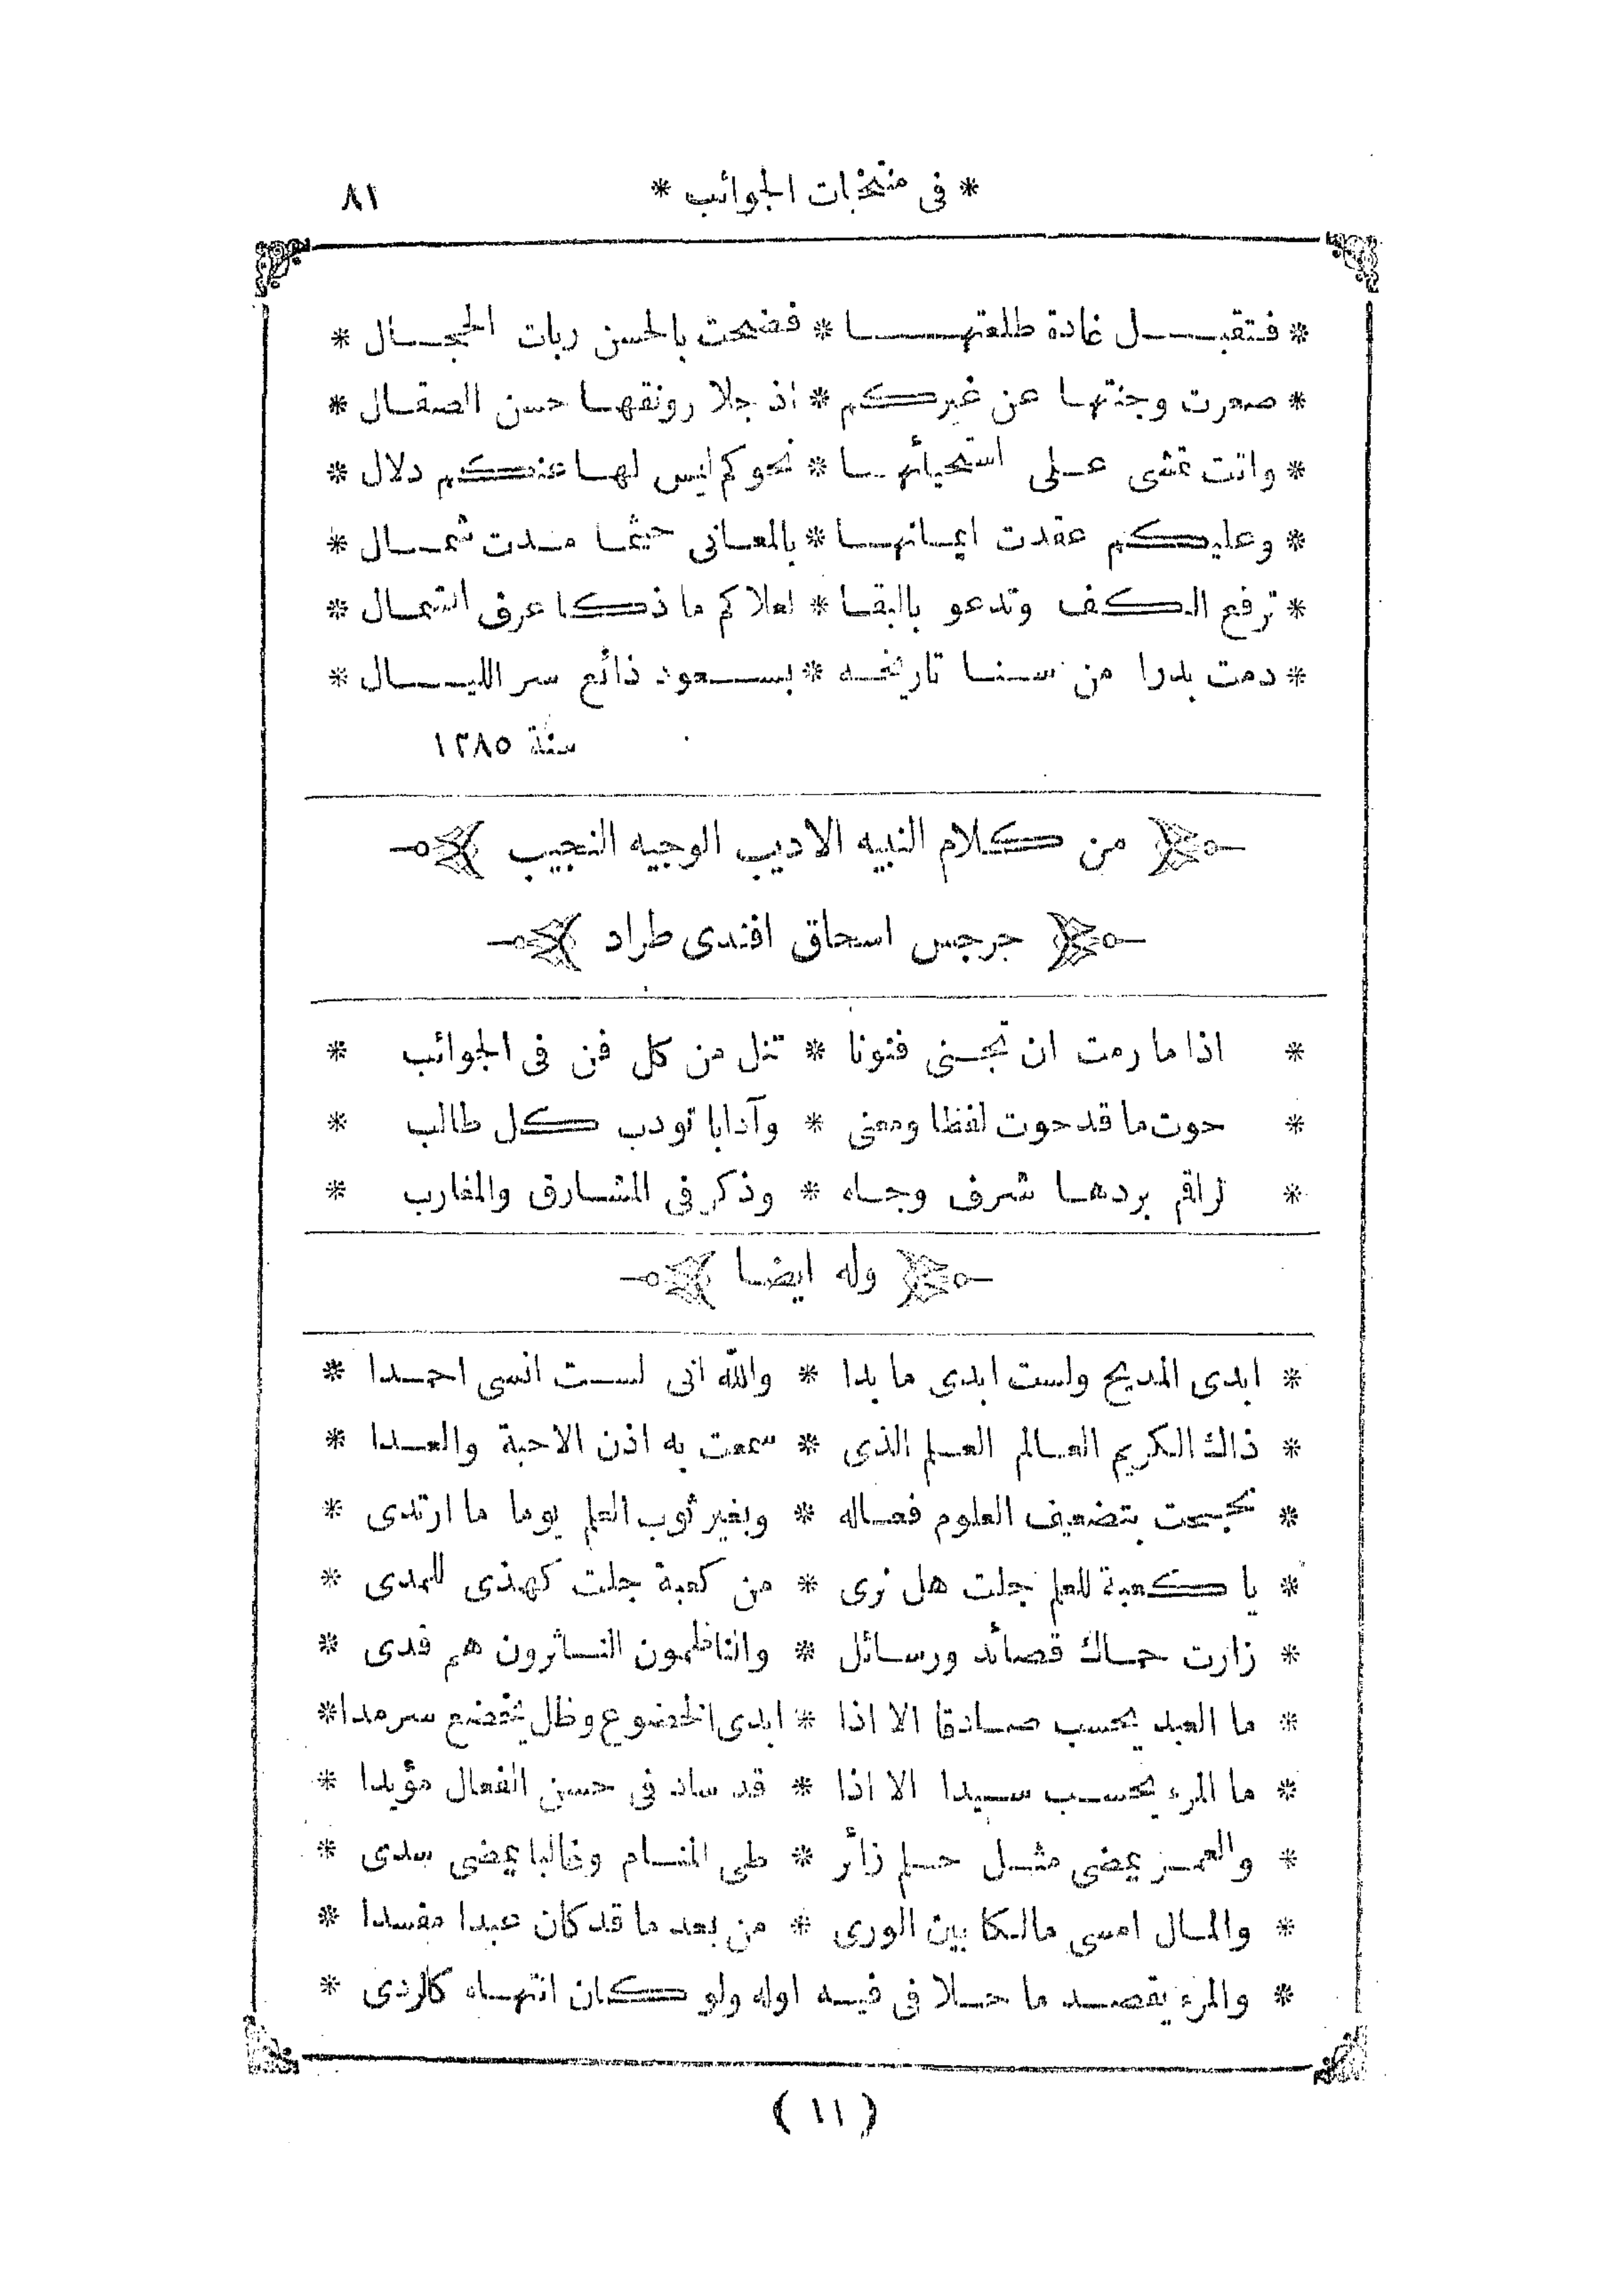 * فى منتخبات الجوائب * ٨١
* فتقبل غادة طلعتها * فضحت بالحسن ربات الحجال *
* صعرت وجنتها عن غيركم * اذ جلا رونقها حسن الصقال *
* واتت تمشى على استحيائها * نحوكم ليس لها عنكم دلال *
* وعليكم عقدت ايمانها * بالمعانى حيثما مدت شمال *
* ترفع الكف وتدعو بالبقا * لعلاكم ما ذكا عرف الشمال *
* دمت بدرا من سنا تاريخه * بسعود ذائع سر الليال *
سنة ١٢٨٥
من كلام النبيه الاديب الوجيه النجيب
جرجس اسحاق افندى طراد
* اذا ما رمت ان تجنى فنونا * تنل من كل فن فى الجوائب *
* حوت ما قد حوت لفظا ومعنى * وآدابا تودب كل طالب *
* لراقم بردها شرف وجاه * وذكر فى المشارق والمغارب *
وله ايضا
* ابدى المديح ولست ابدى ما بدا * والله انى لست انسى احمدا *
* ذاك الكريم العالم العلم الذى * سمعت به اذن الاحبة والعدا *
* نجحت بتضعيف العلوم فعاله * وبغير ثوب العلم يوما ما ارتدى *
* يا كعبة للعلم جلت هل نرى * من كعبة جلت كهذى للهدى *
* زارت حماك قصائد ورسائل * والناظمون الناثرون هم فدى *
* ما العبد يحسب صادقا الا اذا * ابدى الخضوع وظل يخضع سرمدا *
* ما المرء يحسب سيدا الا اذا * قد ساد فى حسن الفعال مؤيدا *
* والعمر يمضى مثل حلم زائر * طى المنام وغالبا يمضى سدى *
* والمال امسى مالكا بين الورى * من بعد ما قد كان عبدا مفسدا *
* والمرء يقصد ما حلا فى فيه اوله ولو كان انتهاه كالردى *
( ١١ )